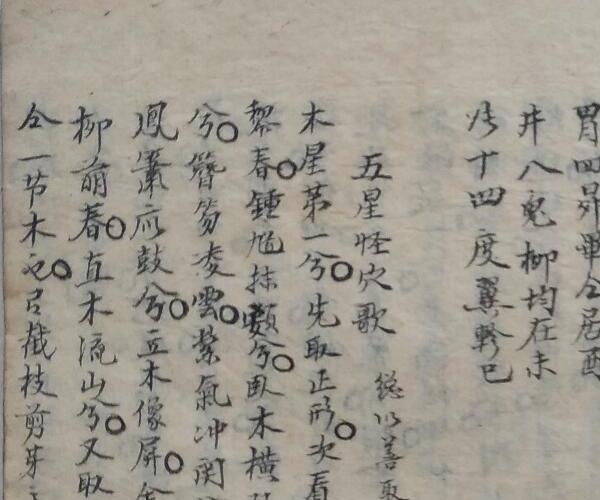 胃四昴畢仝居酉
井八鬼柳均在未
十四度翼軫巳
五星怪穴歌 総以善取
木星第一兮先取正形次看
黎春鍾馗抹額兮卧木橫
兮簪笏凌雲紫氣冲関
鳳簫應鼓兮立木像屏
柳萌春直木流山兮又取
仝一节木也吕截枝剪芽